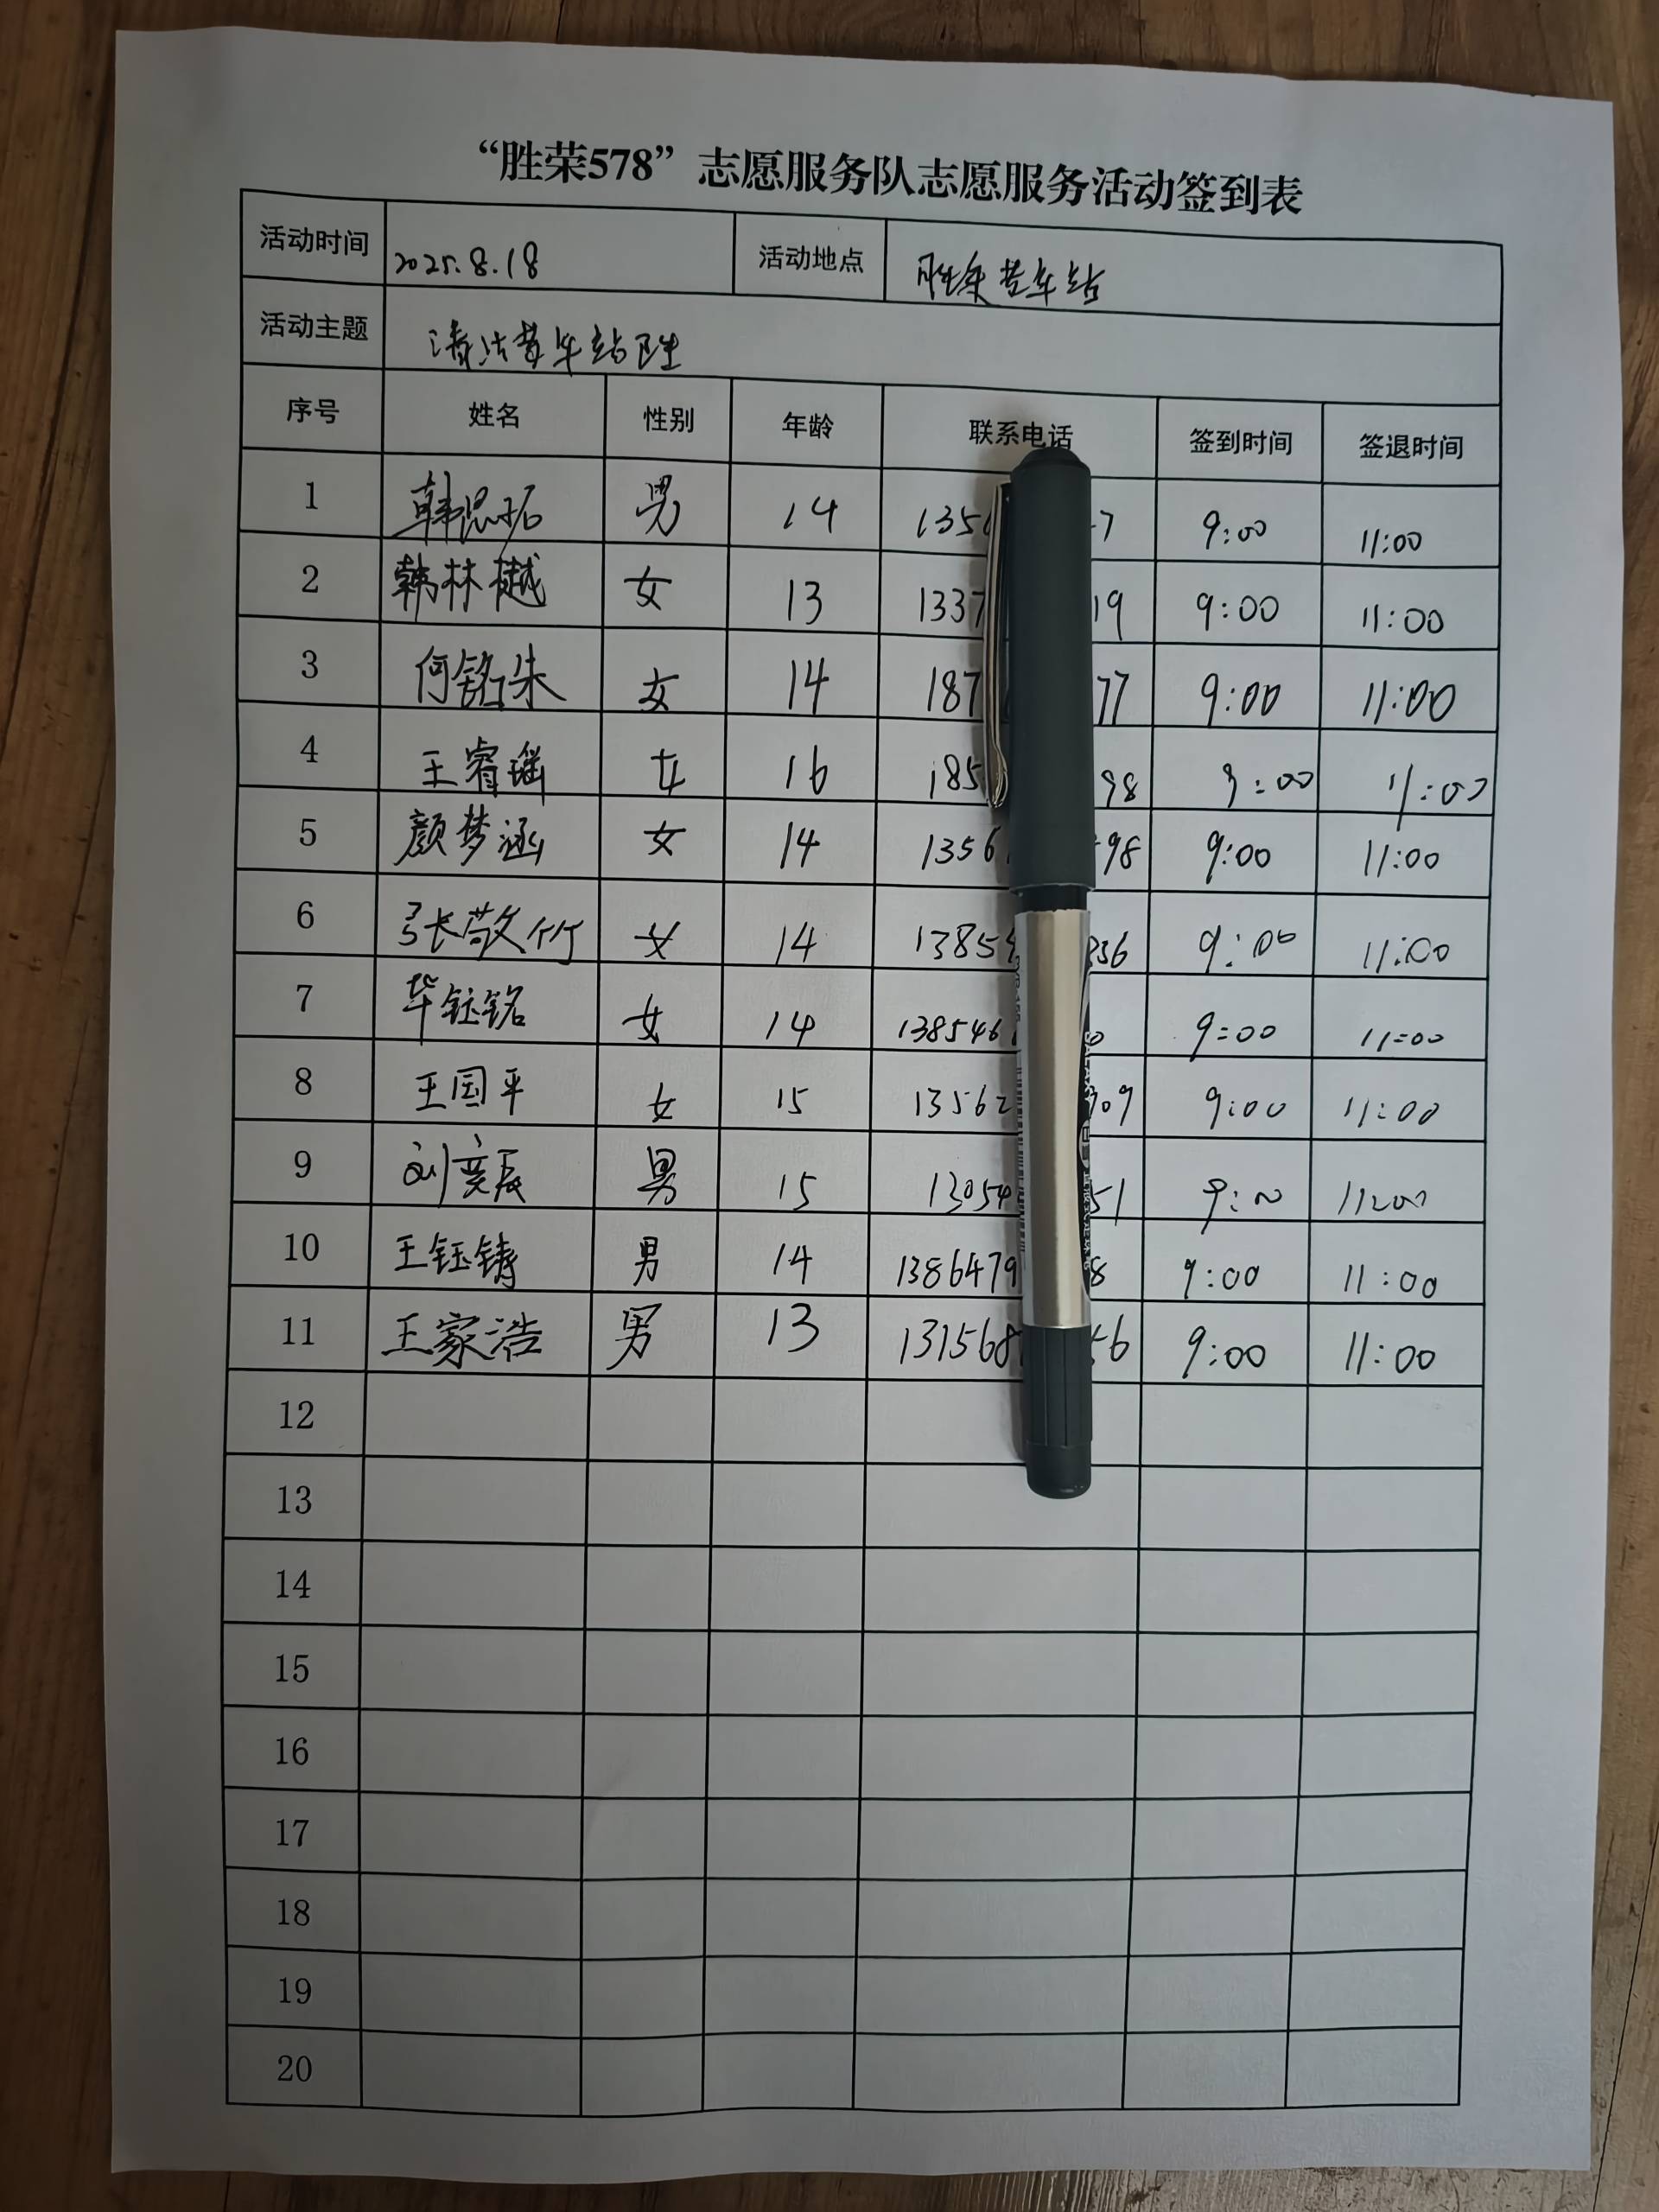 “胜荣578”志愿服务队志愿服务活动签到表
活动时间 2025.8.18 活动地点 胜
活动主题 清洁 车站
序号 姓名 性别 年龄 联系电话 签到时间 签退时间
1 韩思拓 男 14 135 7 9:00 11:00
2 韩林樾 女 13 133 19 9:00 11:00
3 何铭朱 女 14 187 77 9:00 11:00
4 王睿瑶 女 16 185 98 9:00 11:00
5 颜梦涵 女 14 1356 98 9:00 11:00
6 张敬竹 女 14 1385 36 9:00 11:00
7 毕钰铭 女 14 138546 0 9=00 11=00
8 王国平 女 15 13562 09 9:00 11:00
9 刘彦辰 男 15 13054 51 9:00 11:00
10 王钰铸 男 14 1386479 8 9:00 11:00
11 王家浩 男 13 131568 56 9:00 11:00
12
13
14
15
16
17
18
19
20